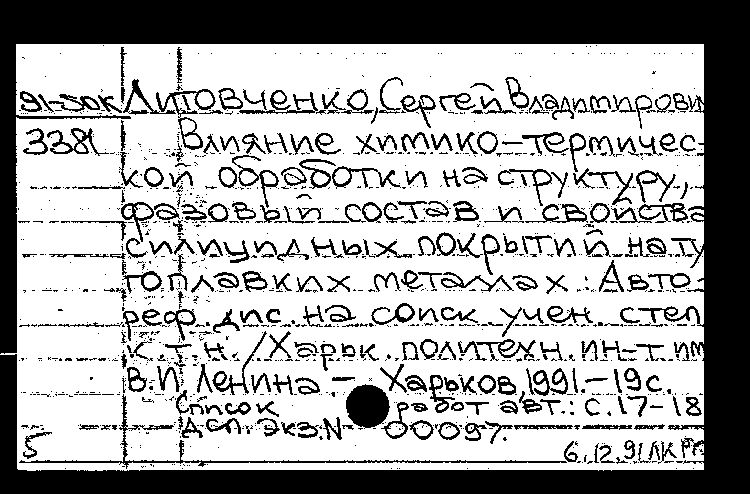 91-50К Литовченко, Сергей Владимирович
3381 Влияние химико-термичес-
кой обработки на структуру,
фазовый состав и свойства
силицидных покрытий на ту
гоплавких металлах: Авто-
реф. дис. на соиск. учен. степ.
к.т.н. / Харьк. политехн. ин-т им
В.И. Ленина – Харьков, 1991. – 19 с.
Список работ авт.: с. 17-18
Дсп. Экз. N 00097.
5 6.12.91 ЛК